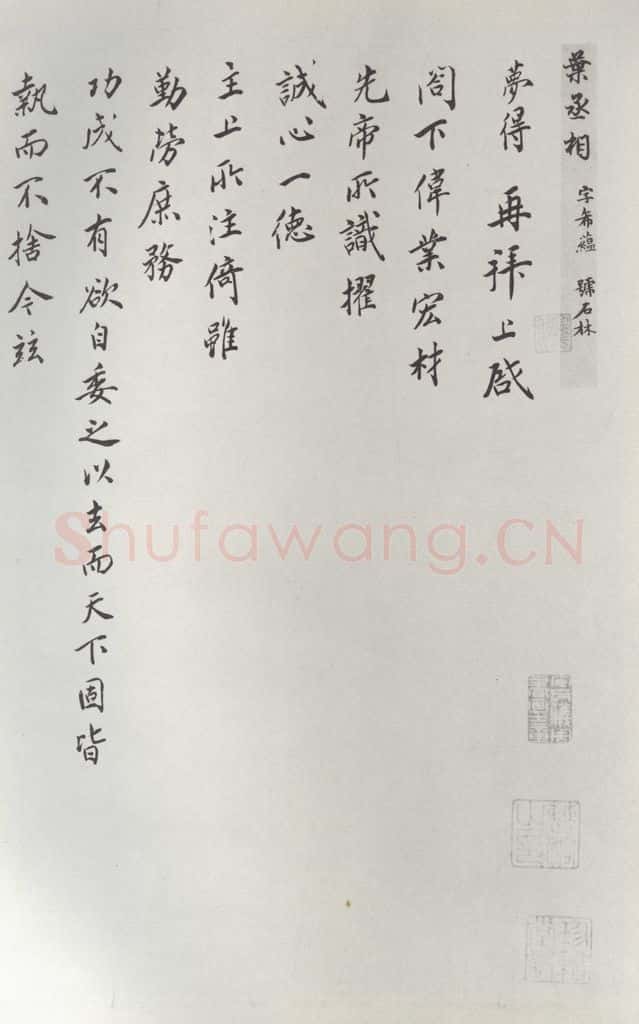 葉丞相 字希蘊 號石林
夢得 再拜上啟
閤下偉業宏材
先帝所識擢
誠心一德
主上所注倚雖
勤勞庶務
功成不有欲自委之以去而天下固皆
執而不捨今茲
Shufawang.CN